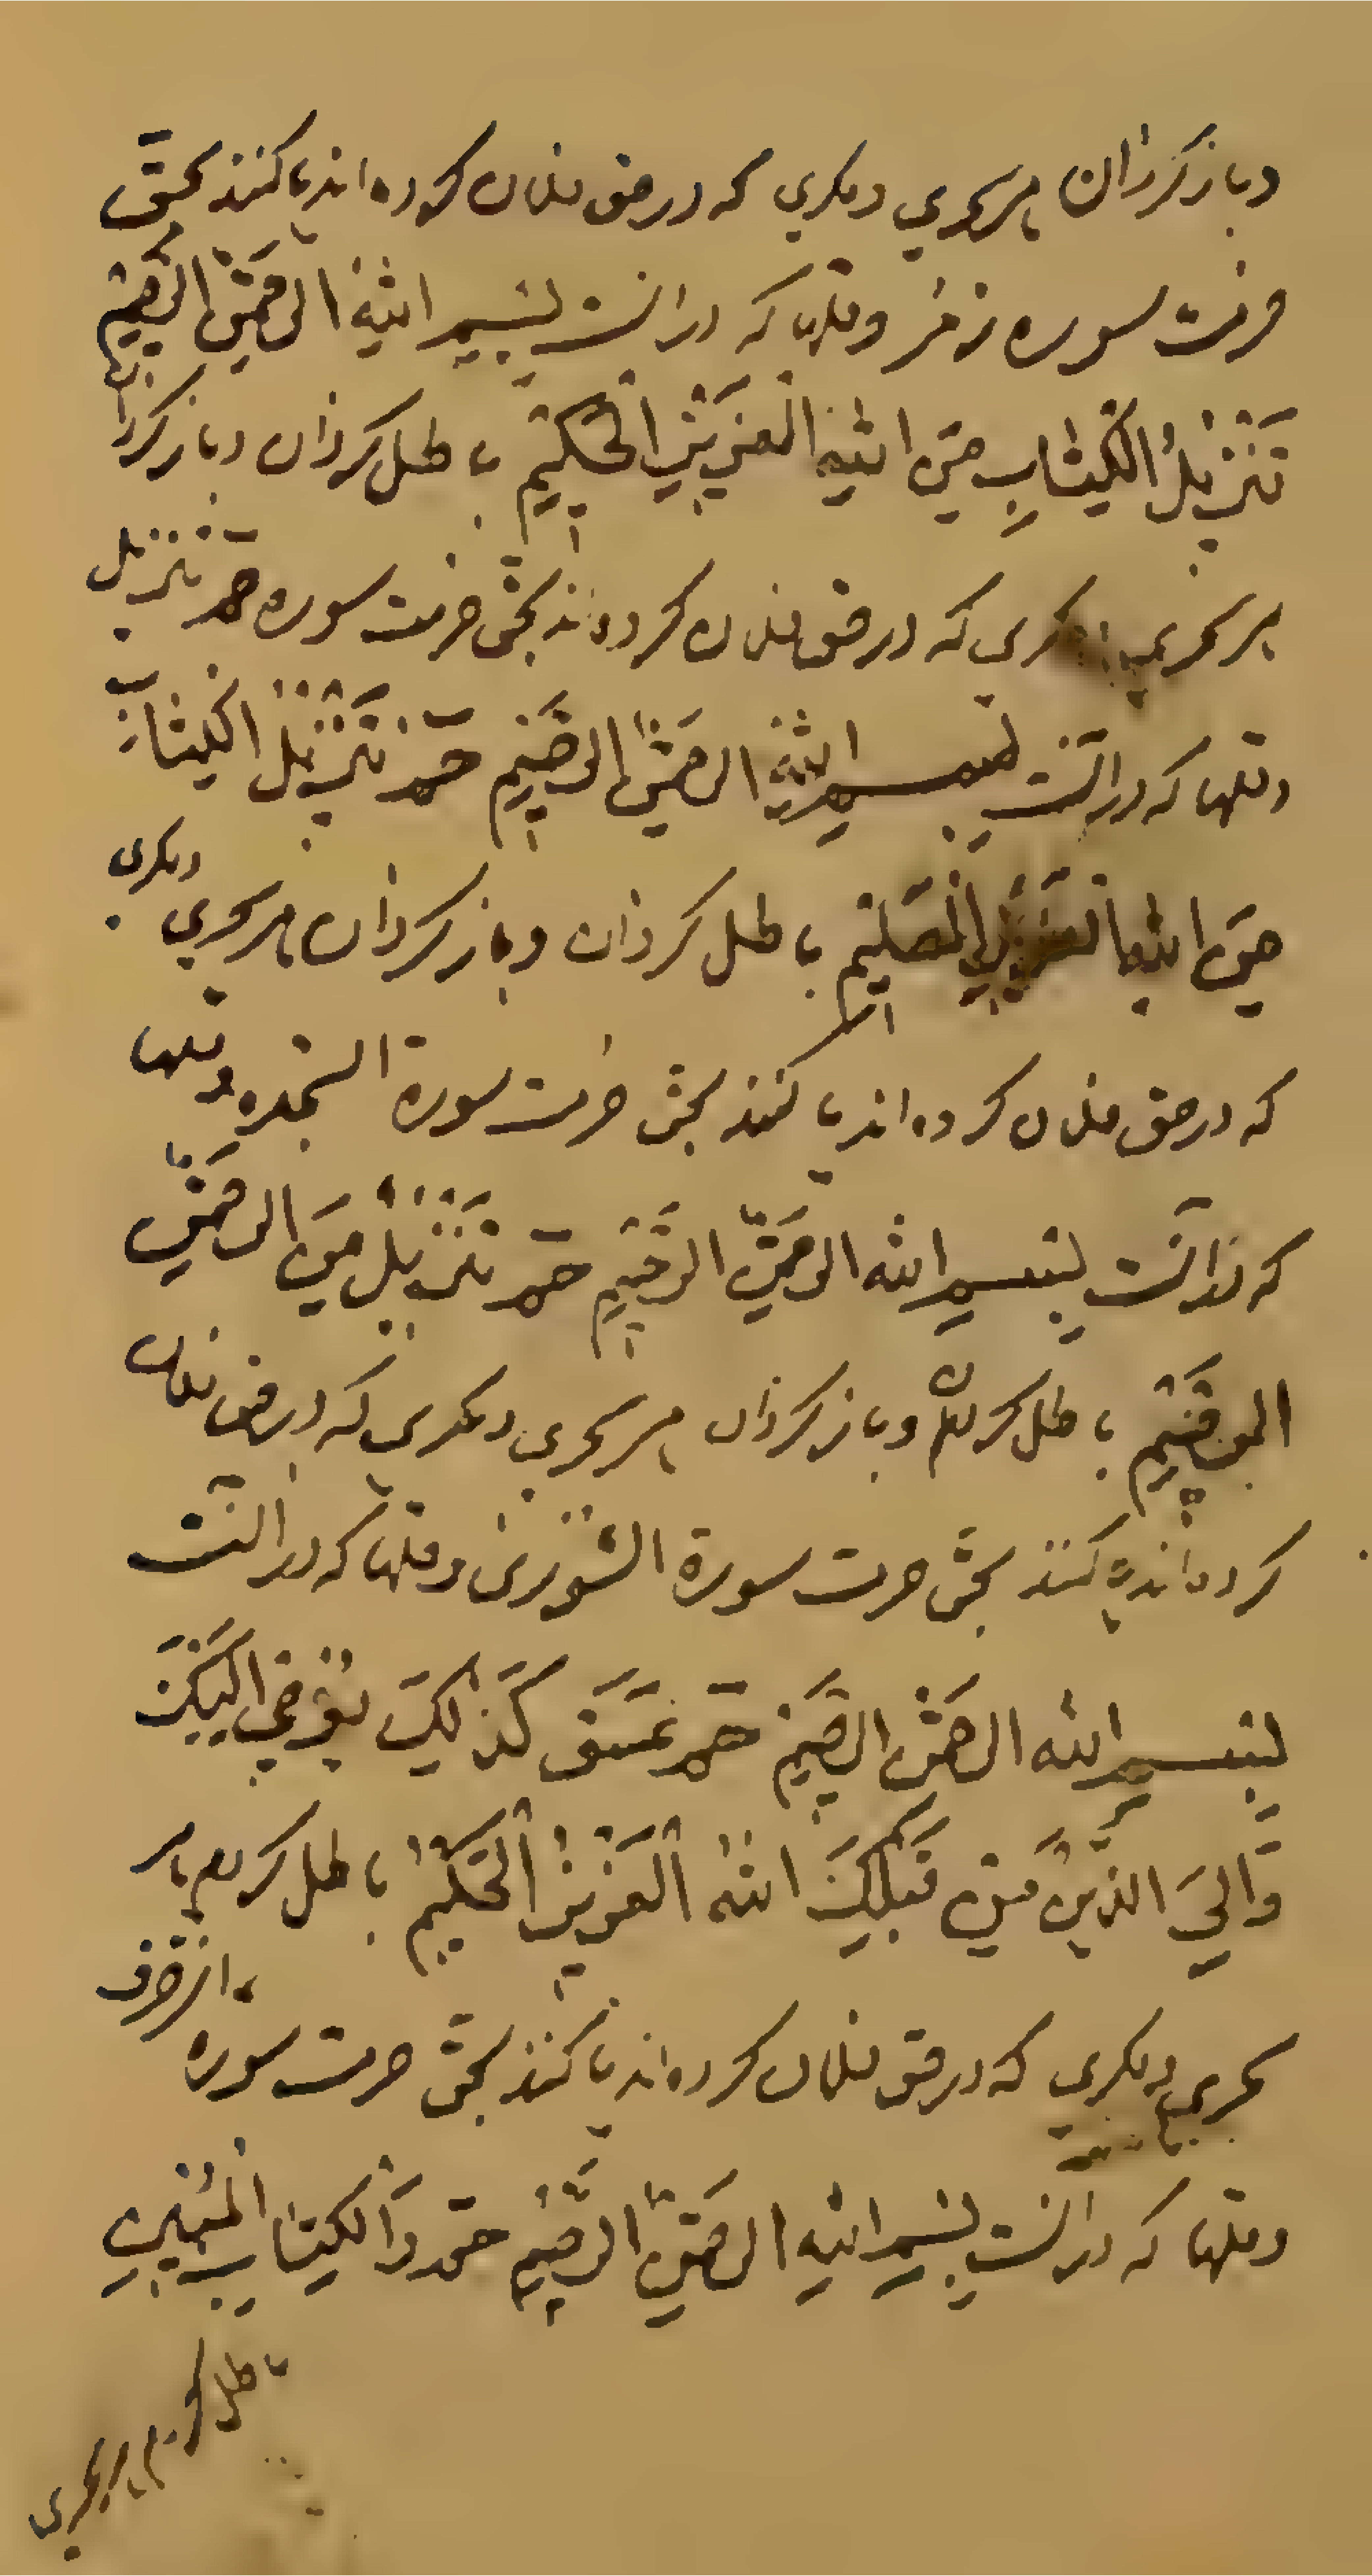 وباز کردان هر سحری ومکری که در حق فلان کرده اند یا کنند بحق
حرمت سوره زمر وفلها که در انست بسم الله الرحمن الرحیم
تنزیل الکتاب من الله العزیز الحکیم باطل کردان وباز کردان
هر سحری ومکری که در حق فلان کرده اند بحق حرمت سوره حم تنزیل
وفلها که در انست بسم الله الرحمن الرحیم حم تنزیل الکتاب
من الله العزیز العلیم باطل کردان وباز کردان هر سحری ومکری
که در حق فلان کرده اند یا کنند بحق حرمت سورة السجده وفلها
که در انست بسم الله الرحمن الرحیم حم تنزیل من الرحمن
الرحیم باطل کردم وباز کردان هر سحری ومکری که در حق فلان
کرده اند یا کنند بحق حرمت سورة الشوری وفلها که در انست
بسم الله الرحمن الرحیم حم عسق کذلک یوحی الیک
والی الذین من قبلک الله العزیز الحکیم باطل کردم هر
سحری ومکری که در حق فلان کرده اند یا کنند بحق حرمت سوره الزخرف
وفلها که در انست بسم الله الرحمن الرحیم حم والکتاب المبین
باطل کردم هر سحری